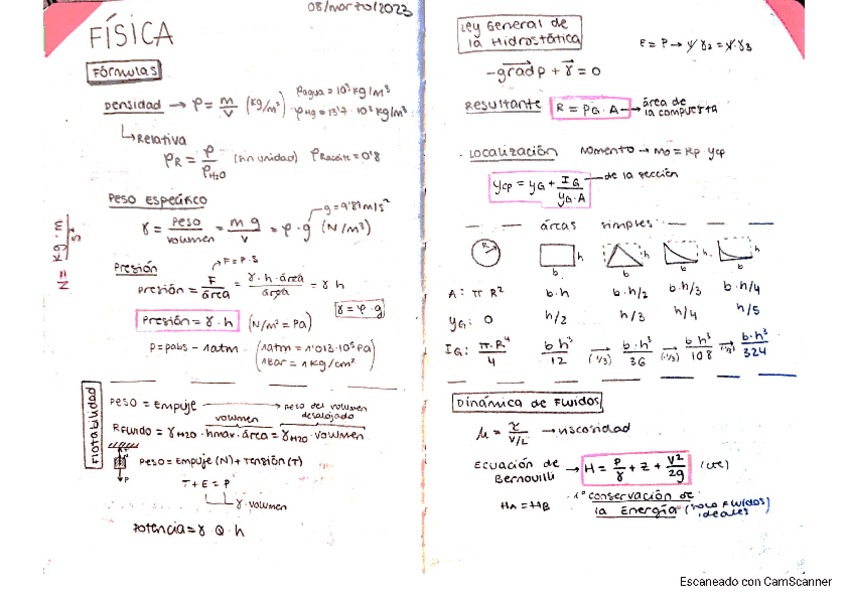 08/marzo/2023
FÍSICA
Fórmulas
Densidad → ρ = m/v (kg/m³) · ρagua = 10³ kg/m³
ρHg = 13'7 · 10³ kg/m³
↳ Relativa
ρR = ρ/ρH2O (sin unidad) ρRaceite = 0'8
Peso Específico
g = 9'81 m/s²
γ = peso/volumen = m g/v = ρ · g (N/m³)
N = kg · m/s²
Presión
F = P · S
presión = F/área = γ · h · área/área = γ h
γ = ρ · g
Presión = γ · h (N/m² = Pa)
P = Pabs - 1atm · (1atm = 1'013·10⁵ Pa)
(1Bar = 1 kg/cm²)
Flotabilidad
Peso = Empuje → peso del volumen desalojado
volumen
RFluido = γH2O · hmax · área = γH2O · volumen
T
P
Peso = Empuje (N) + Tensión (T)
T + E = P
γ · volumen
Potencia = γ · Q · h
Ley General de
la Hidrostática
E = P → γ γ2 = γ γs
-grad p + γ = 0
Resultante R = PG · A → área de
la compuerta
Localización Momento → Mo = Rp · ycp
ycp = yG + IG/yG·A de la sección
áreas simples
R
b h
b h
b h
b h
A: π R² b·h b·h/2 b·h/3 b·h/4
yG: 0 h/2 h/3 h/4 h/5
IG: π·R⁴/4 b h³/12 →(·1/3) b·h³/36 →(·1/3) b·h³/108 →(·1/3) b·h³/324
Dinámica de Fluidos
μ = τ/V/L → viscosidad
Ecuación de
Bernouilli → H = P/γ + z + V²/2g (cte)
HA = HB
"conservación de
la Energía" (solo Fluidos
ideales)
Escaneado con CamScanner